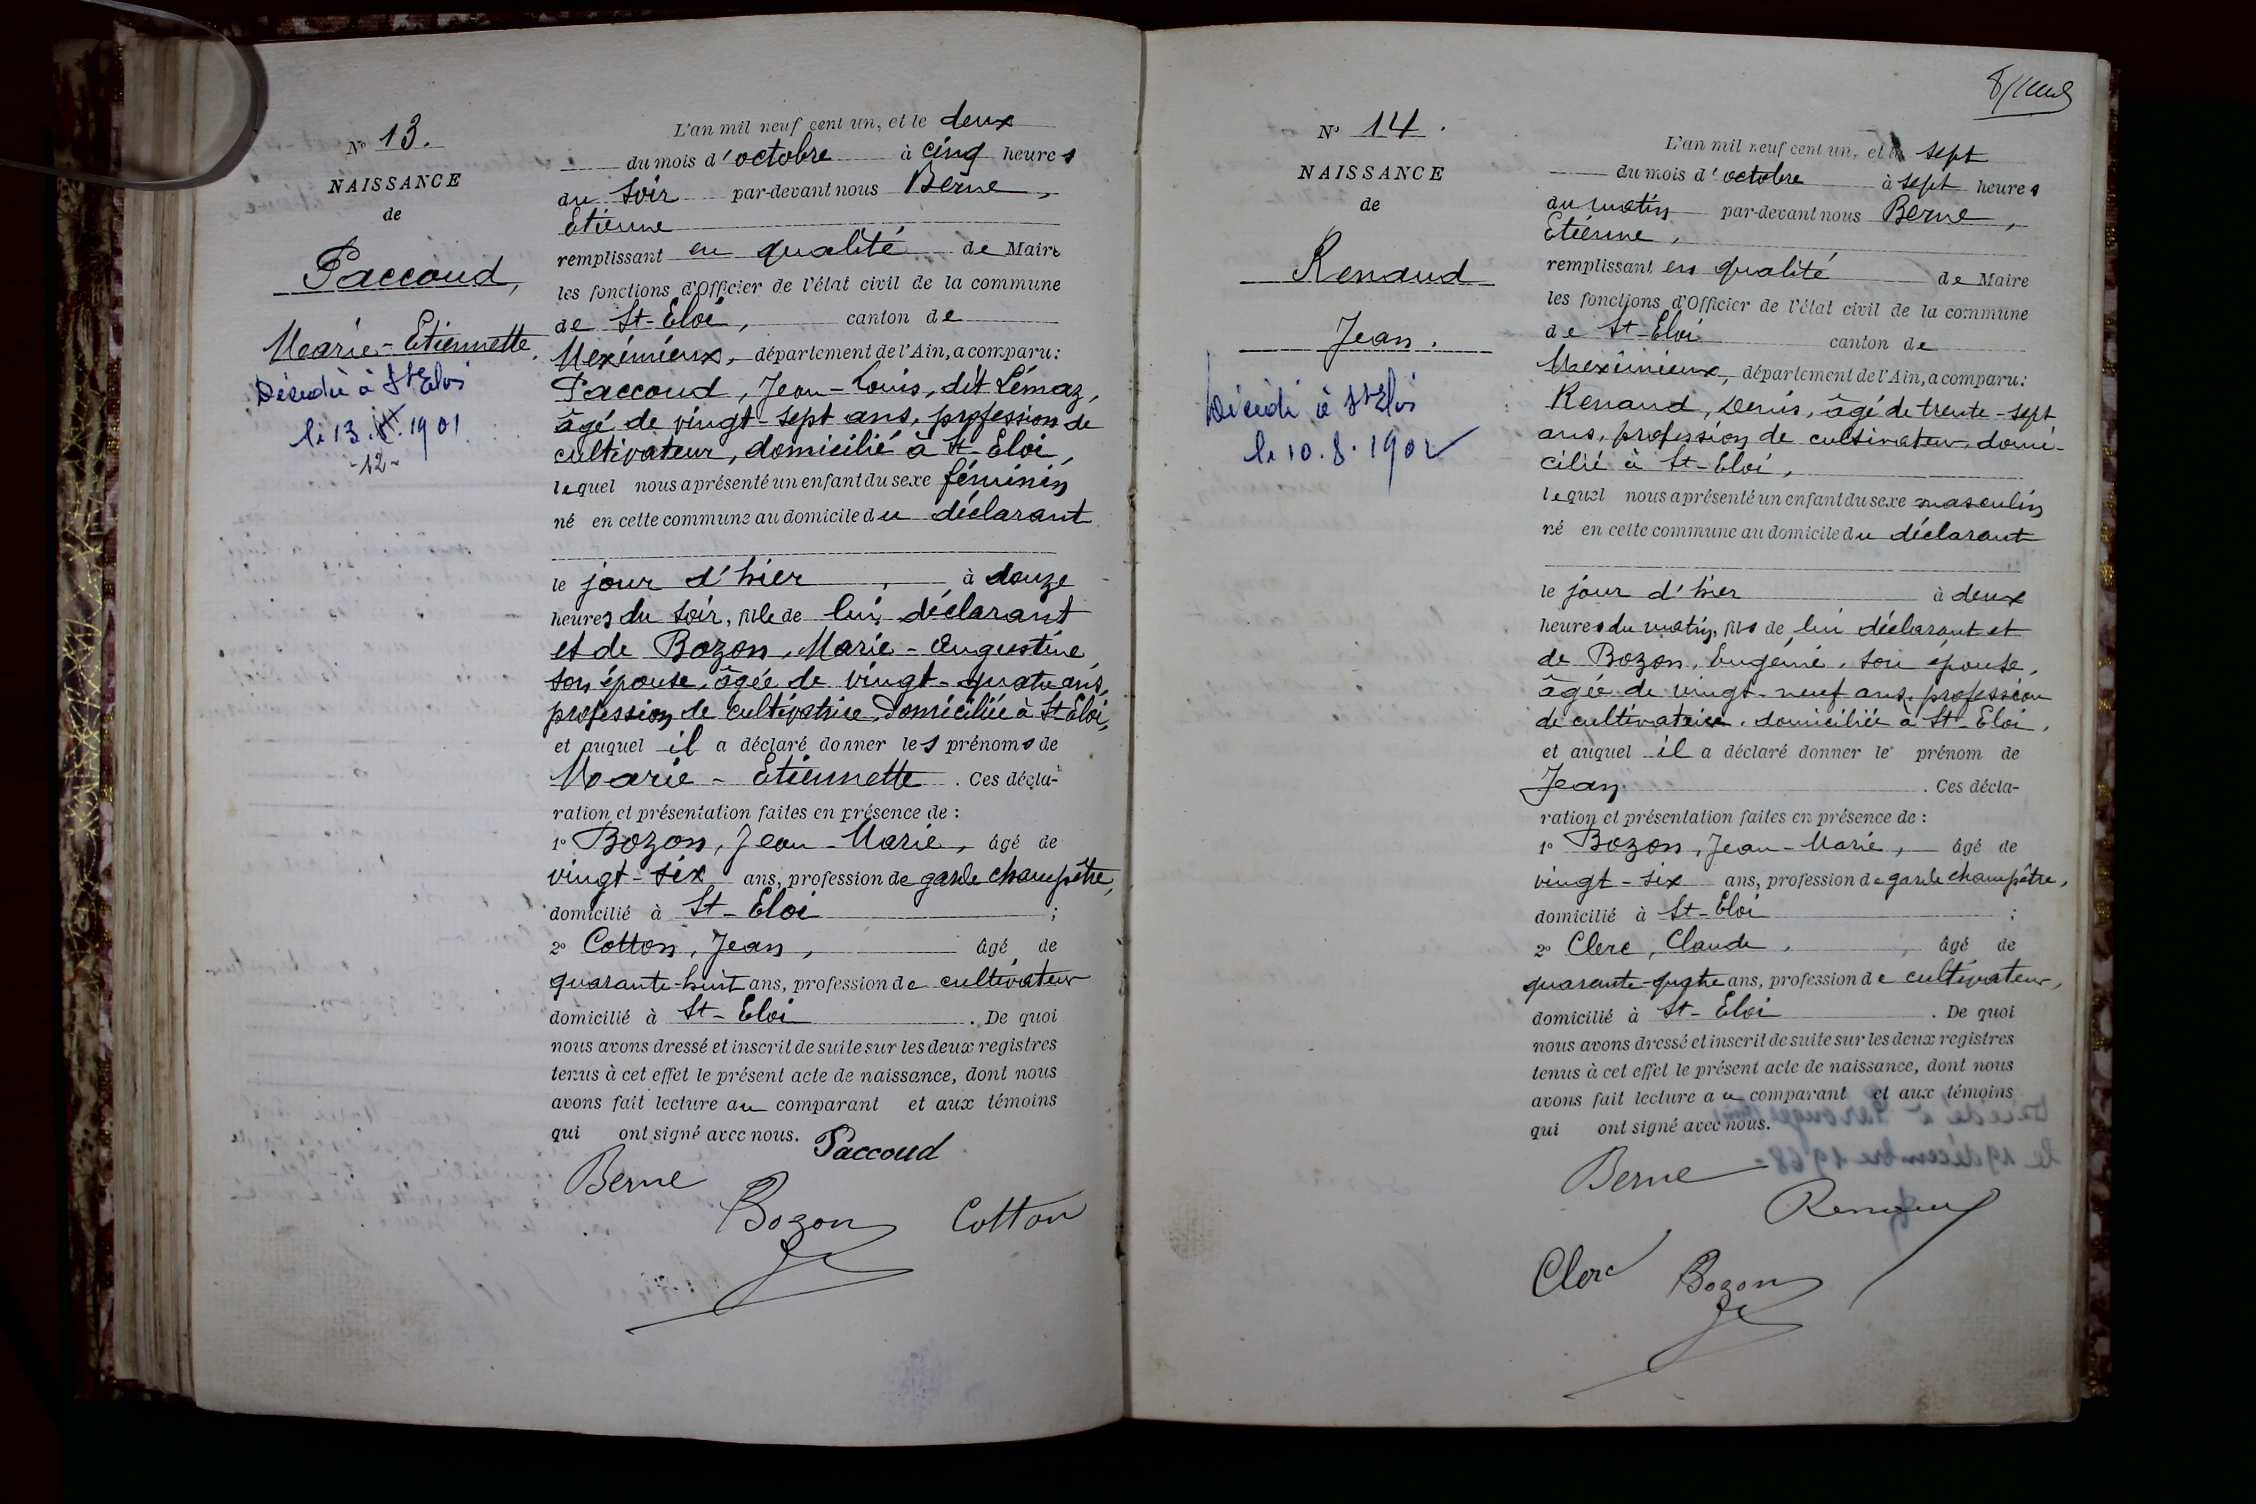 No 13.
NAISSANCE
de
Paccoud,
Marie-Etiennette.
Décédée à St Eloi
le 13. 1901
-12-
L'an mil neuf cent un, et le deux
du mois d'octobre à cinq heures
du soir par-devant nous Berne,
Etienne
remplissant en qualité de Maire
les fonctions d'Officier de l'état civil de la commune
de St-Eloi, canton de
Meximieux, département de l'Ain, a comparu:
Paccoud, Jean-Louis, dit Lémaz,
âgé de vingt-sept ans, profession de
cultivateur, domicilié à St-Eloi,
lequel nous a présenté un enfant du sexe féminin
né en cette commune au domicile du déclarant
le jour d'hier, à douze
heures du soir, fille de lui déclarant
et de Bozon, Marie-Augustine,
son épouse, âgée de vingt-quatre ans,
profession de cultivatrice, domiciliée à St Eloi,
et auquel il a déclaré donner les prénoms de
Marie-Etiennette. Ces décla-
ration et présentation faites en présence de :
1º Bozon, Jean-Marie, âgé de
vingt-six ans, profession de garde champêtre,
domicilié à St-Eloi ;
2º Cotton, Jean, âgé de
quarante-huit ans, profession de cultivateur
domicilié à St-Eloi. De quoi
nous avons dressé et inscrit de suite sur les deux registres
tenus à cet effet le présent acte de naissance, dont nous
avons fait lecture au comparant et aux témoins
qui ont signé avec nous. Paccoud
Berne
Bozon Cotton
No 14.
NAISSANCE
de
Renaud
Jean.
Décédé à St Eloi
le 10.8.1902
L'an mil neuf cent un, et le sept
du mois d'octobre à sept heures
du matin par-devant nous Berne,
Etienne,
remplissant en qualité de Maire
les fonctions d'Officier de l'état civil de la commune
de St-Eloi canton de
Meximieux, département de l'Ain, a comparu:
Renaud, Denis, âgé de trente-sept
ans, profession de cultivateur, domi-
cilié à St-Eloi,
lequel nous a présenté un enfant du sexe masculin
né en cette commune au domicile du déclarant
le jour d'hier à deux
heures du matin, fils de lui déclarant et
de Bozon, Eugénie, son épouse,
âgée de vingt-neuf ans, profession
de cultivatrice, domiciliée à St-Eloi,
et auquel il a déclaré donner le prénom de
Jean. Ces décla-
ration et présentation faites en présence de :
1º Bozon, Jean-Marie, âgé de
vingt-six ans, profession de garde champêtre,
domicilié à St-Eloi ;
2º Clerc, Claude, âgé de
quarante-quatre ans, profession de cultivateur,
domicilié à St-Eloi. De quoi
nous avons dressé et inscrit de suite sur les deux registres
tenus à cet effet le présent acte de naissance, dont nous
avons fait lecture au comparant et aux témoins
qui ont signé avec nous.
Berne
Renaud
Clerc Bozon